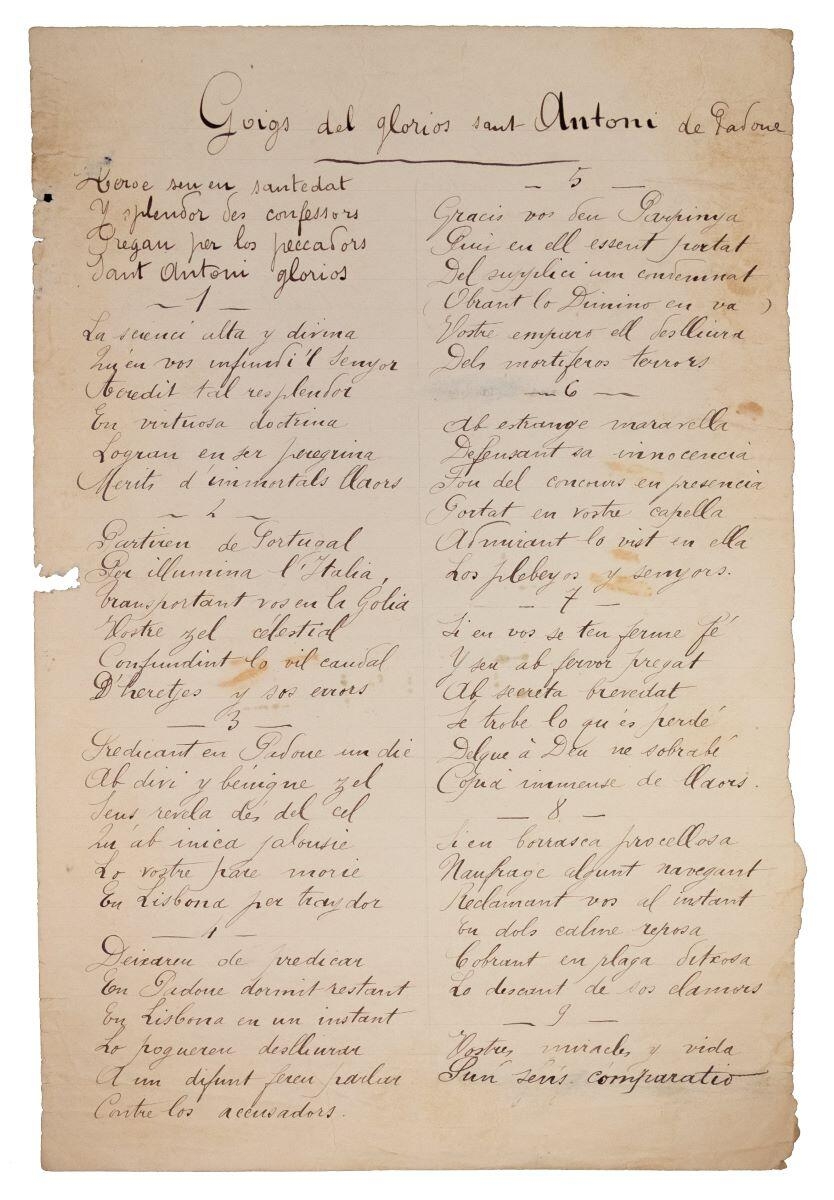 Goigs del glorios sant Antoni de Padoue
Heroe seu en santedat
Y splendor des confessors
Pregau per los peccadors
Sant Antoni glorios
1
La scienci alta y divina
Qu'en vos infundi'l Senyor
Acredit tal resplendor
En virtuosa doctrina
Logran en ser peregrina
Merits d'immortals llaors
2
Partiren de Portugal
Per illumina l'Italia
Transportant vos en la Golia
Vostre zel célestial
Confundint lo vil caudal
D'heretjes y sos errors
3
Predicant en Padoue un die
Ab divi y benigne zel
Seus revela des del cel
Qu'ab inica jalousie
Lo vostre pare morie
En Lisbona per traydor
4
Deixareu de predicar
En Padoue dormit restant
En Lisbona en un instant
Lo poguereu deslliurar
A un difunt fereu parlar
Contre los accusadors.
5
Gracis vos deu Parpinya
Puix en ell essent portat
Del supplici un condemnat
(Obrant lo Dimino en va)
Vostre emparo ell deslliura
Dels mortiferos terrors
6
Ab estrange maravella
Defensant sa innocencia
Fou del concours en presencia
Portat en vostre capella
Admirant lo vist en ella
Los plebeyos y senyors.
7
Si en vos se ten ferme fé
Y seu ab fervor pregat
Ab secreta brevedat
Se trobe lo qu'és perdé
Delque à Deu ne sobrabé
Copia immense de llaors.
8
Si en borrasca procellosa
Naufrage algunt navegant
Reclamant vos al instant
En dols calme reposa
Cobrant en plaga ditxosa
Lo descant de sos clamors
9
Vostres miracles y vida
Sun sens comparatio